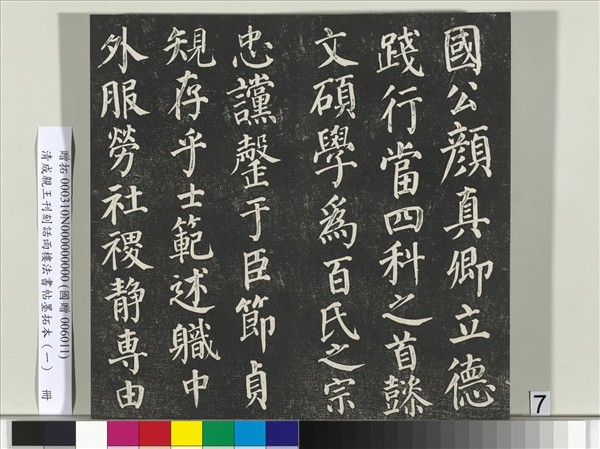 國公顔真卿立德
踐行當四科之首懿
文碩學爲百氏之宗
忠讜罄于臣節貞
䂓存乎士範述軄中
外服勞社禝静専由
贈拓 000310N000000000 (國贈 006011)
清成親王刊刻話雨樓法書帖墨拓本（一） 冊
7